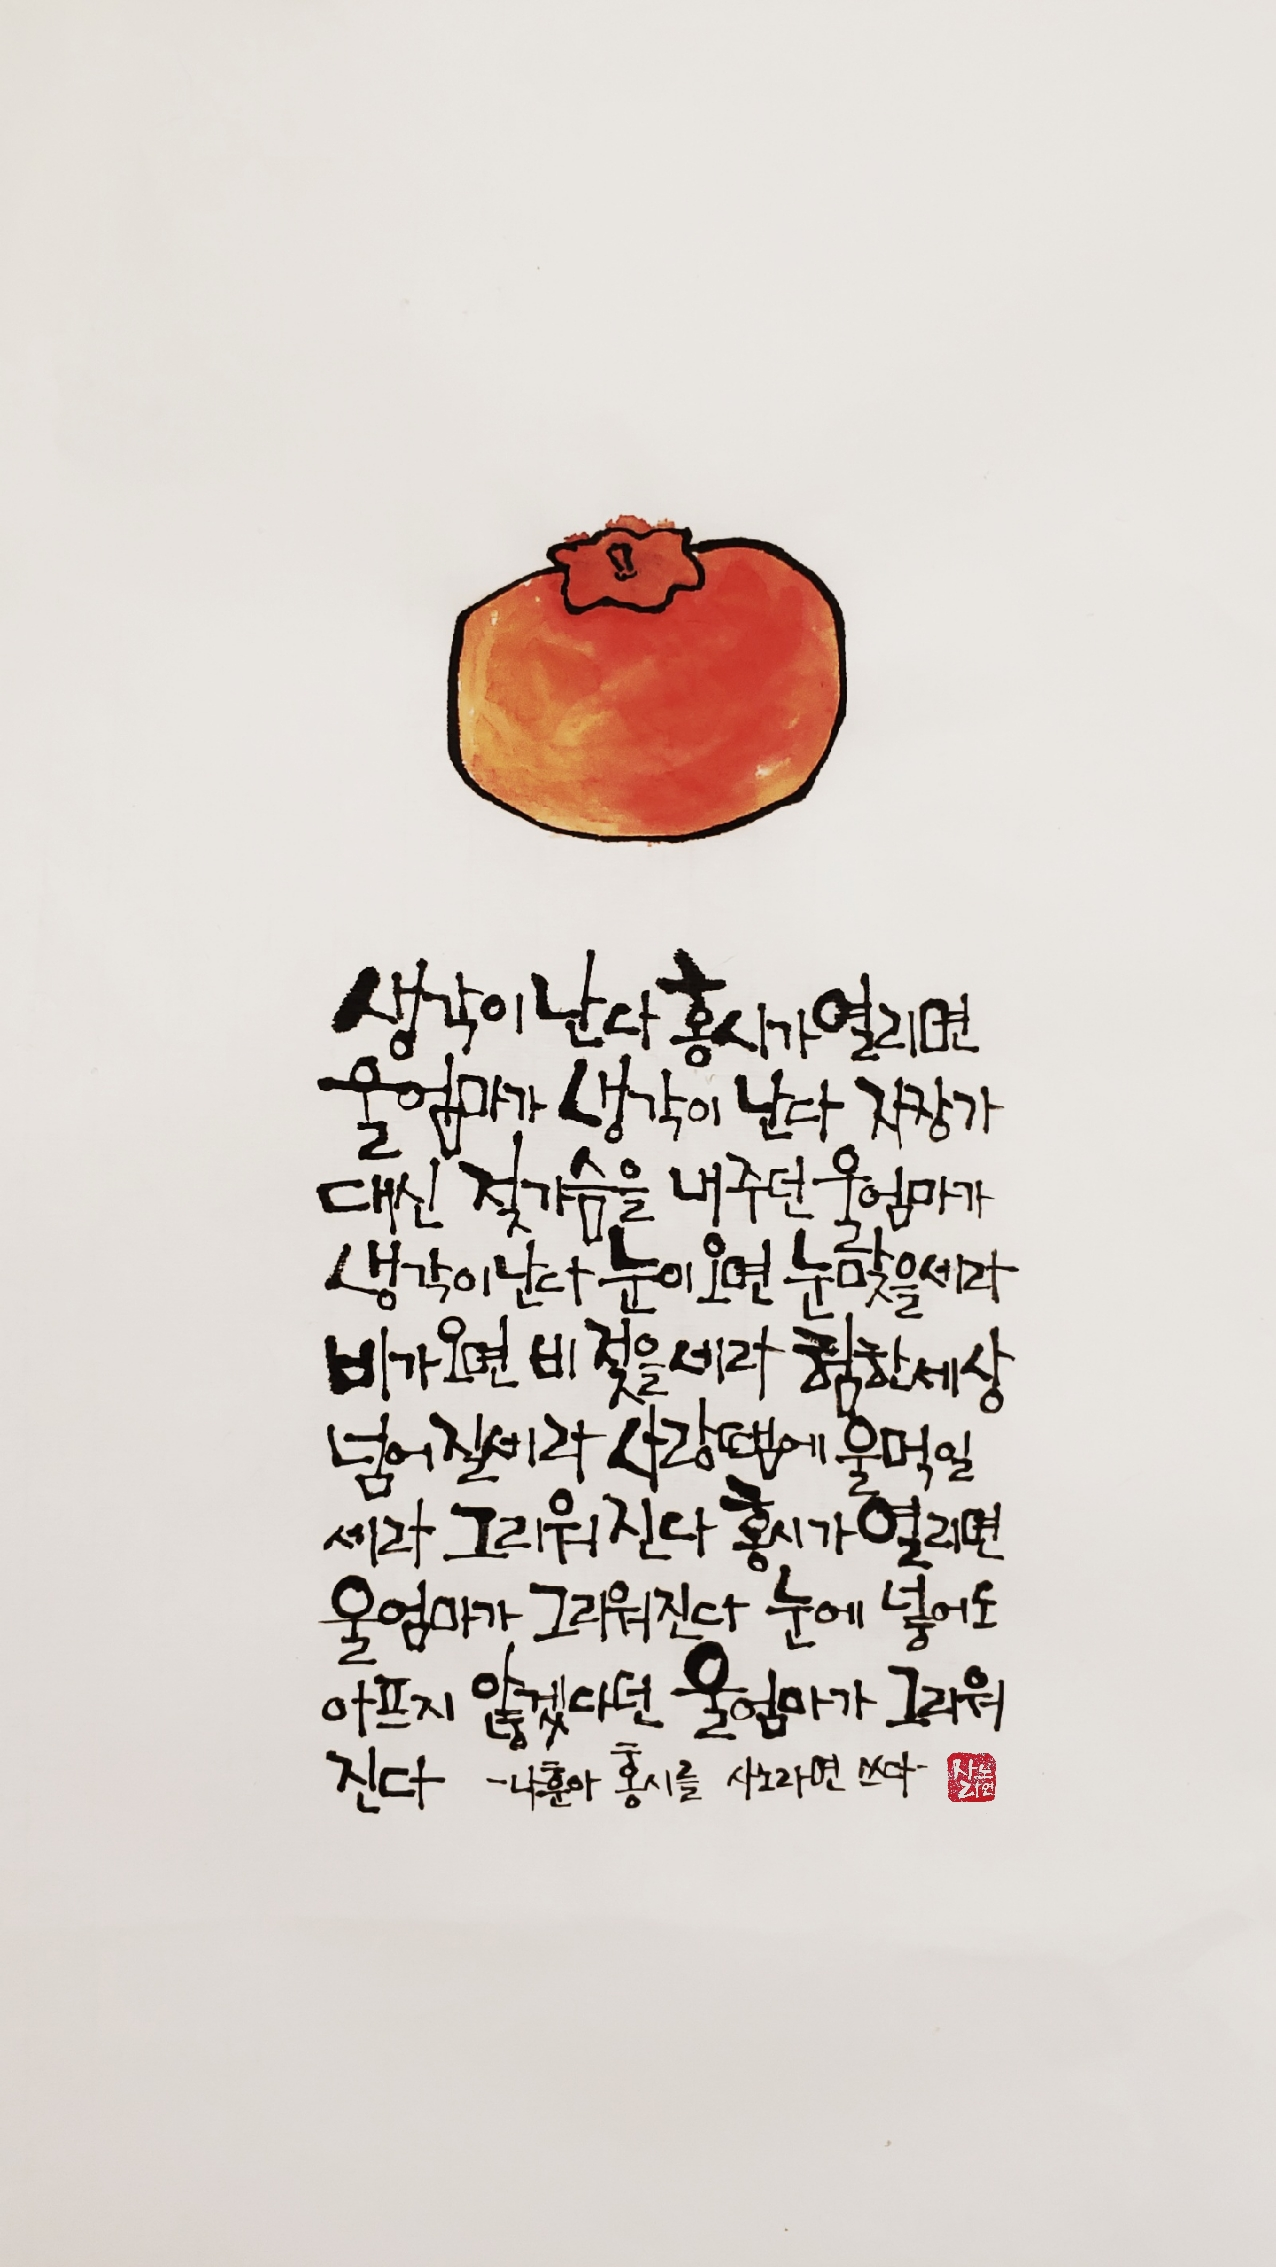 생각이 난다 홍시가 열리면
울엄마가 생각이 난다 자장가
대신 젖가슴을 내주던 울엄마가
생각이 난다 눈이 오면 눈맞을세라
비가오면 비 젖을세라 험한세상
넘어질세라 사랑땜에 울먹일
세라 그리워진다 홍시가 열리면
울엄마가 그리워진다 눈에 넣어도
아프지 않겠다던 울엄마가 그리워
진다 -나훈아 홍시를 사노라면 쓰다-
사노라면